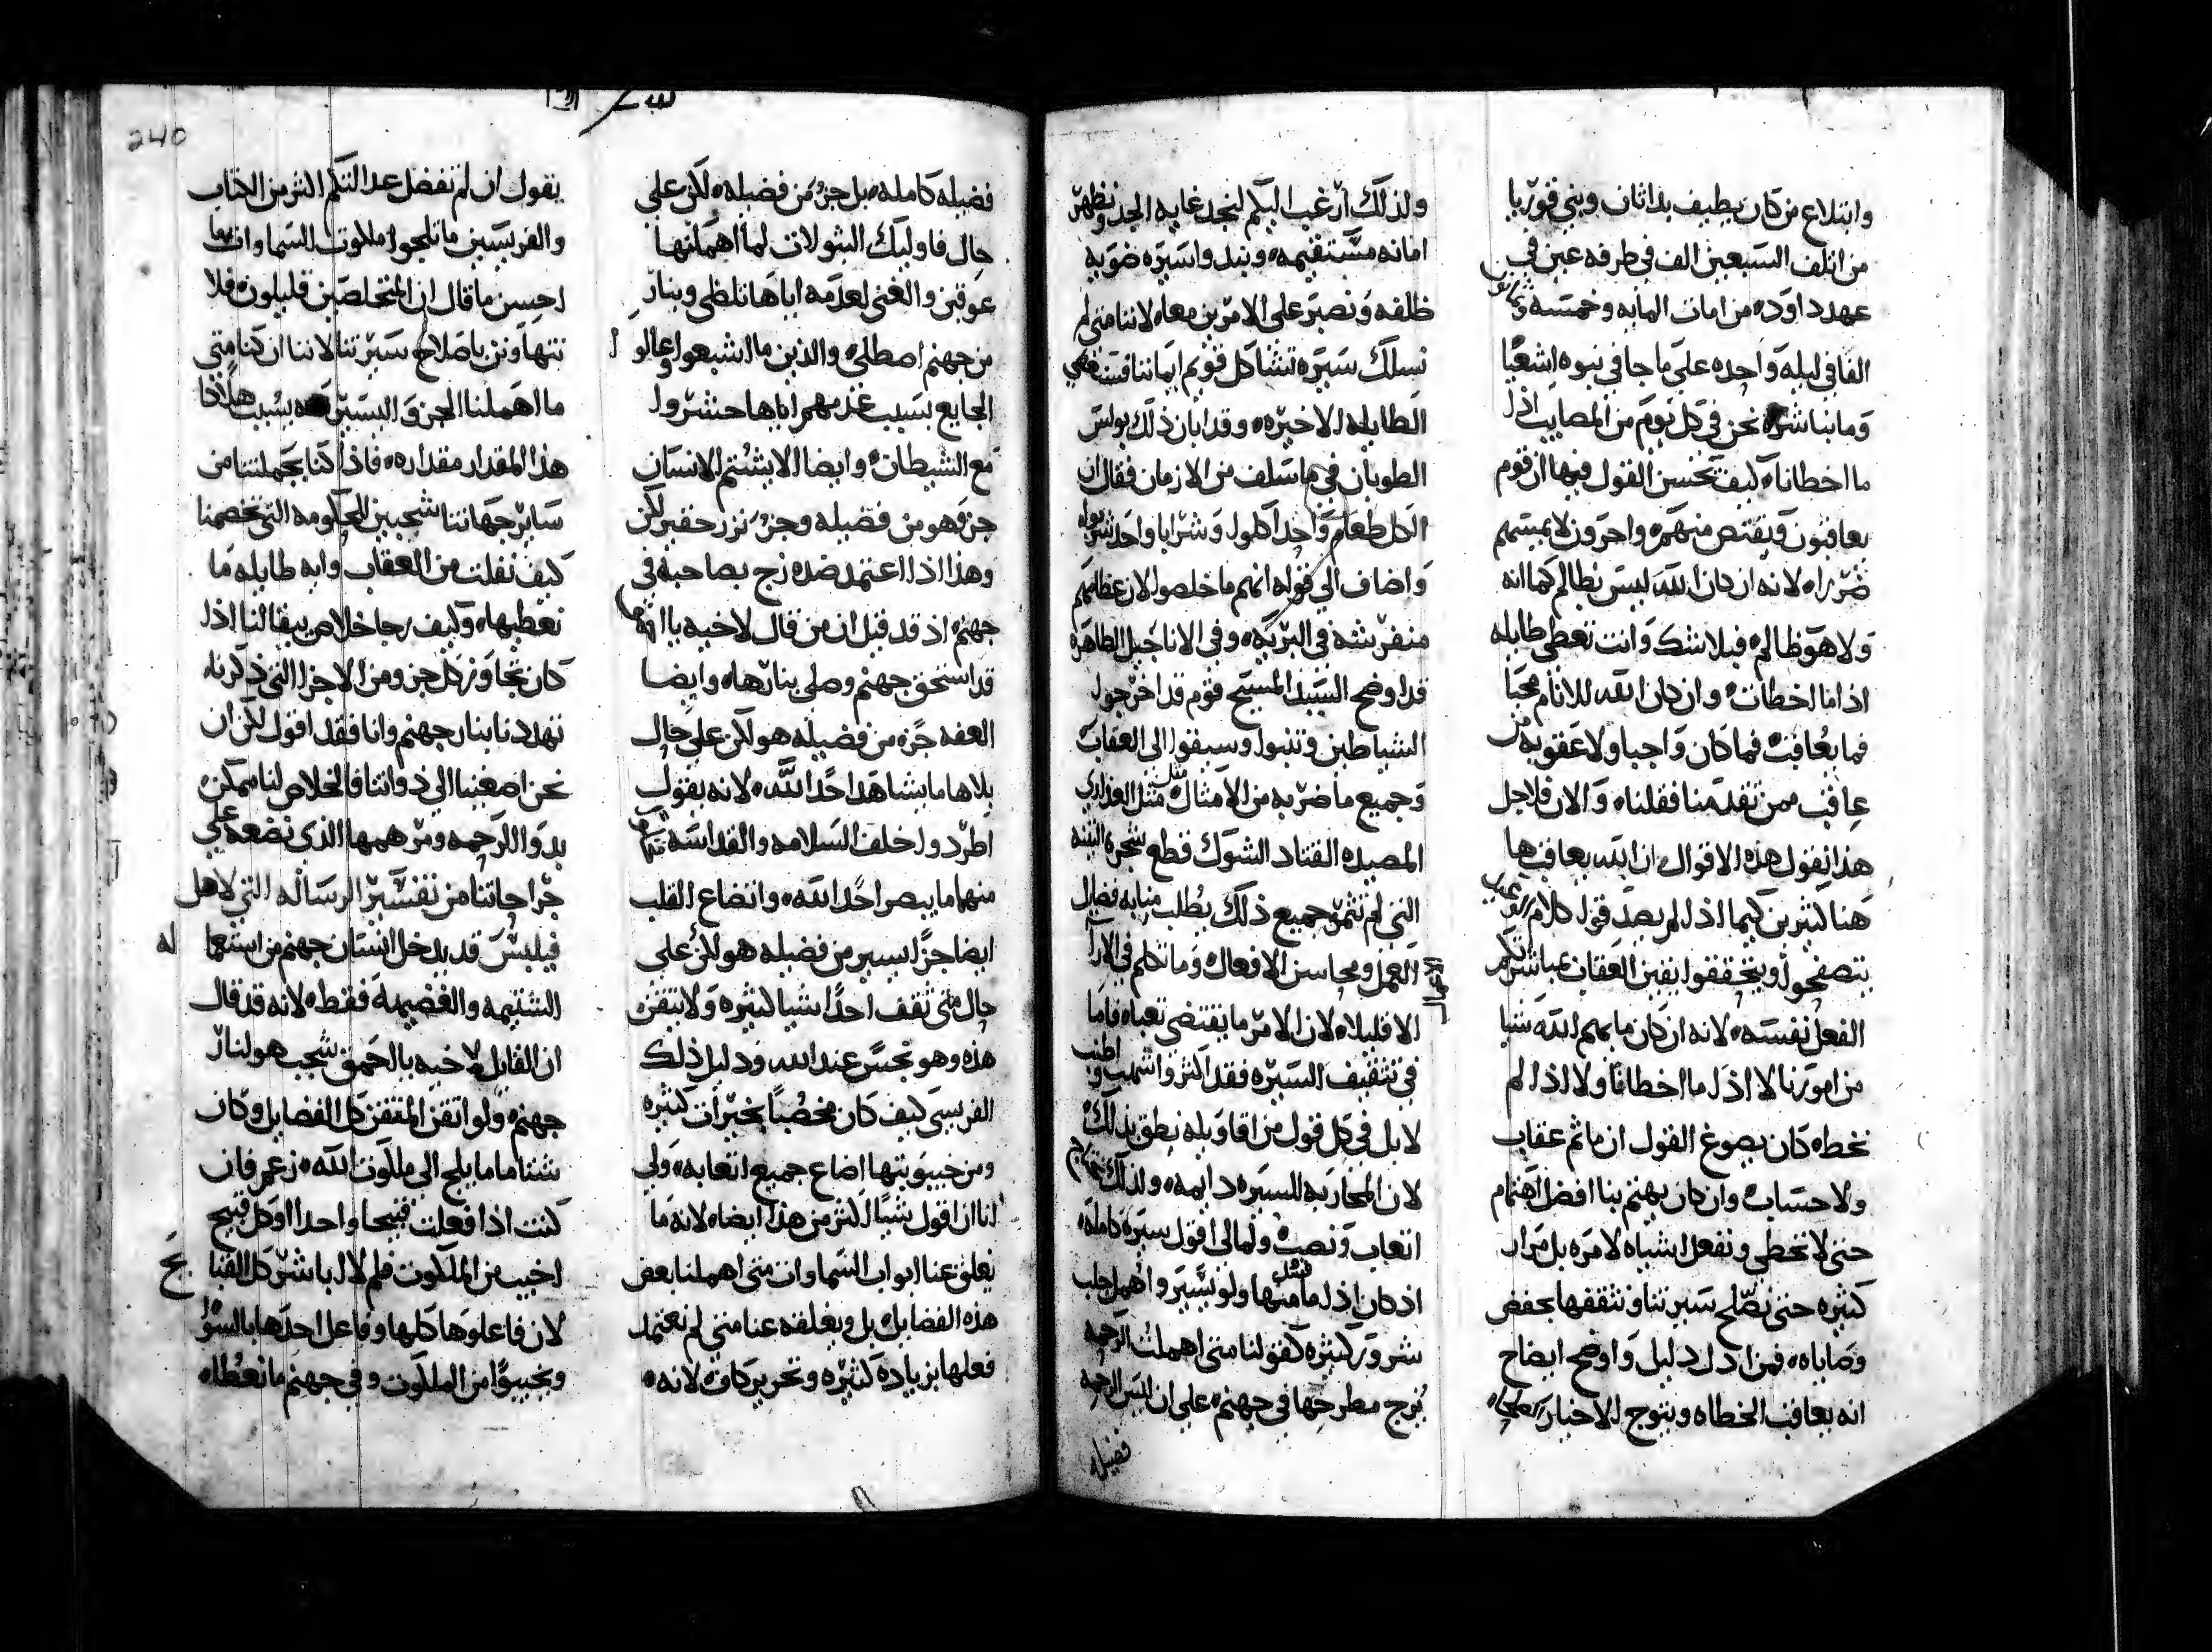 وابتلاع من كان يطيف بداثان وبني قورنا
من اتلف السبعين الف في طرفه عين في
عهد داود من امات المايه وخمسه وثمانون
الفا في ليله واحده علي ما جا في نبوه اشعيا
وما نباشره نحن في كل يوم من المصايب اذا
ما اخطانا كيف يحسن القول فيها ان قوم
يعاقبون ويقتص منهم واخرون لا يمسهم
ضررا لانه ان كان الله ليس بظالم كما انه
ولا هو ظالم فبلا شك وانت تعطي طايله
اذا ما اخطات وان كان الله للانام محبا
فما يعاقب فما كان واجبا ولا عقوبه من
عاقب ممن تقدمنا فقلناه والان فلاجل
هذا نقول هذه الاقوال ان الله يعاقب ها
هنا كثيرين كيما اذا لم يصدقوا كلام الوعيد
يتصفحوا ويتحققوا يقين العقاب مباشرتكم
الفعل نفسه لانه ان كان ما يهم الله شيا
من امورنا لا اذا ما اخطانا ولا اذا لم
نخطه كان يصوغ القول ان ما ثم عقاب
ولا حساب وان كان يهتم بنا افضل اهتمام
حتي لا نخطي ونفعل اشياه لا مره بل مرار
كثيره حتي نصلح سيرتنا ونثقفها بحفض
وصاياه فمن ادل دليل واوضح ايضاح
انه يعاقب الخطاه ويتوج الاخيار
ولذلك ارغب اليكم لنجد غايه الجد ونظهر
امانه مستقيمه ونبد واسيره ضويه
ظلفه ونصبر علي الامرين معا لاننا متي لم
نسلك سيره تشاكل قويم ايماننا فسنقضي
الطايله الاخيره وقد ابان ذلك بولس
الطوبان في ما سلف من الازمان فقال ان
الكل طعام واحدا كلوا وشرابا واحدا شربوا
واضاف الي قوله انهم ما خلصوا لان عظامهم
منفرشه في البريه وفي الاناجيل الطاهره
قد اوضح السيد المسيح قوم قد اخرجوا
الشياطين وتنبوا وسيقوا الي العقاب
وجميع ما ضربه من الامثال مثل العذاري
المصيده القتاد الشوك قطع شجره التينه
التي لم تثمر جميع ذلك يطلب منا به فضايل
العمل ومحاسن الافعال وما تكلم في الارآ
الا قليلا لان الامر ما يقتضي تعباه فاما
في تثقيف السيره فقد اكثر واسهب واطنب
لا بل في كل قول من اقاويله نطق بذلك
لان المحاربه للسيره دايمه ولذلك
اتعاب ونصب ولما لي اقول سيره كامله
اذ كان اذا ما منها ولو نسير واهمل جلب
شرور كثيره كقولنا متي اهملت الرحمه
يزج مطرحها في جهنم علي ان ليس الرحمه
فضيله
240
فضيله كامله بل جزء من فضيله لكن علي
حال فاوليك البتولات لما اهملنها
عوقبن والغني لعدمه اياها تلظي وبنار
من جهنم اصطلي والذين ما اشبعوا وعالوا
الجايع بسبب عدمهم اياها حشروا
مع الشيطان وايضا الا يشتم الانسان
جزؤ هو من فضيله وجزء نزر حقير لكن
وهذا اذا اعتمد ضده زج بصاحبه في
جهنم اذ قد قيل ان من قال لاخيه يا
قد استحق جهنم وصلي بنارها وايضا
العفه جزء من فضيله هو لكن علي حال
بلاها ما يشاهد احدا الله لانه يقول
اطردوا خلف السلامه والقداسه
منهما ما يبصر احدا الله واتضاع القلب
ايضا جزا يسير من فضيله هو لكن علي
حال متي ثقف احدا اشيا كثيره ولا يتقن
هذه وهو نجس عند الله ودليل ذلك
الفريسي كيف كان مخصبا بخيرات كثيره
ومن خيبوبتها اضاع جميع اتعابه ولي
انا ان اقول شيئا اكثر من هذا ايضا لانه ما
يغلق عنا ابواب السماوات متي اهملنا بعض
هذه الفضايل بل ويغلقه عنا متي لم نعتمد
فعلها بزياده كثيره وتحرير كاف لانه
يقول ان لم تفضل عدالتكم اكثر من الكتاب
والفريسيين ما تلجوا ملكوت السماوات
احسن ما قال ان المتخلصين قليلون فلا
نتهاونن باصلاح سيرتنا لاننا ان كنا متي
ما اهملنا الجزو اليسير بسبب هلاكا
هذا المقدار مقداره فاذا كنا بجملتنا من
ساير جهاتنا شجبين الحكومه التي تخصمنا
كيف نفلت من العقاب وايه طايله ما
نعطيها وكيف رجا خلاص يبقا لنا اذا
كان تجاوز كل جزو من الاجزا التي ذكرناه
تهددنا بنار جهنم وانا فقد اقول لكن ان
نحن اصغينا الي ذواتنا فالخلاص لنا ممكن
بدوا الرحمه ومرهمها الذي نضعه علي
جراحاتنا من تفسير الرساله التي لاهل
فيلبس قد يدخل انسان جهنم من استعماله
الشتيمه والغضيمه فقط لانه قد قال
ان القايل لاخيه بالحمق شجب هو لنار
جهنم ولو اتقن المتقن كل الفضايل وكان
شتاما ما يلج الي ملكوت الله زعم فان
كنت اذا فعلت قبيحا واحدا او كل قبيح
اخيب من الملكوت فلم لا اباشر كل القبايح
لان فاعلوها كلها وفاعل احدها بالسوا
ويخيبوا من الملكوت وفي جهنم ما نعطاه